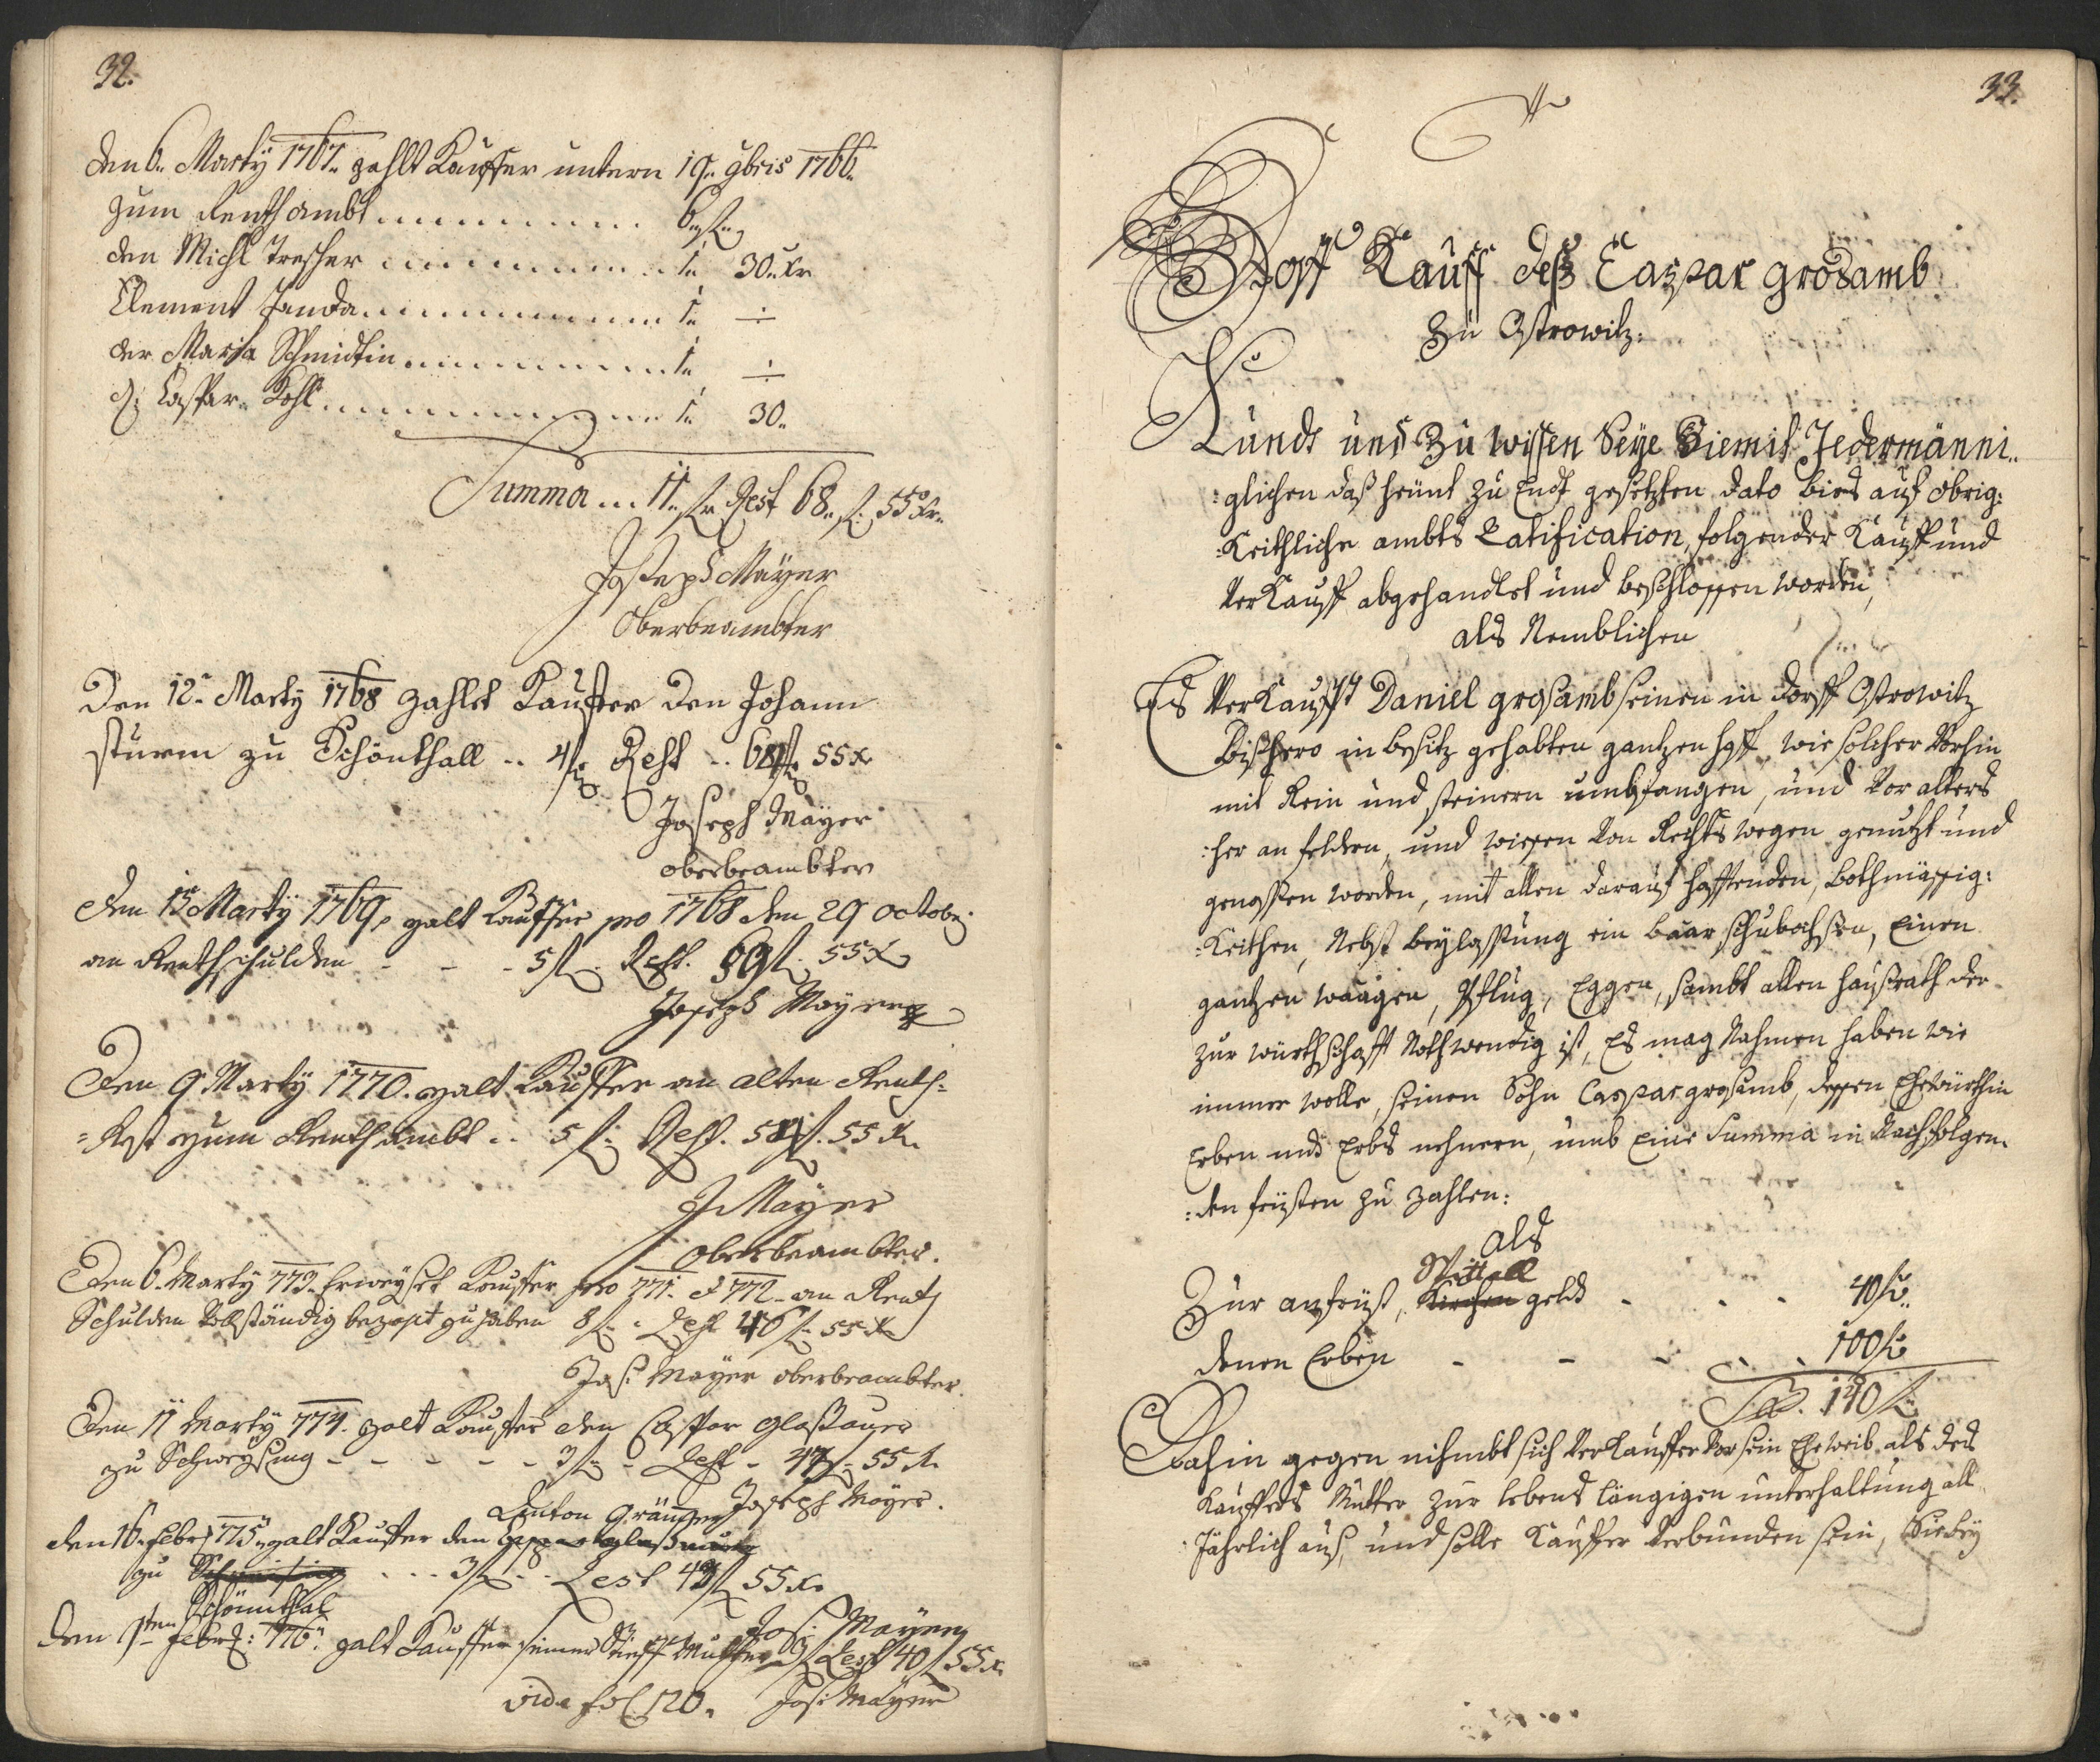 32.
den 6. Marty 1767. zahlt Kauffer untern 19. 9bris 1766.
zum Renthambt . . . . . . . . . 6. fl.
den Michl Trescher . . . . . . . . . 1. 30. xr
Clement Janda . . . . . . . . . 1. ÷
der Maria Schmidtin . . . . . . . . . 1. ÷
d: Caspar Kohl . . . . . . . . . 1. 30.
Summa ... 11. fl. Rest 68. fl. 55 xr.
Joseph Mayer
Oberbeambter
Den 12. Marty 1768 zahlet Kauffer den Johann
Sturm zu Schönthall .. 4 fl. Rest .. 64 fl. 55 x
Joseph Mayer
oberbeambter
den 13 Marty 1769, zalt Kauffer pro 1768 den 29 octobr:
an Renthschulden - - - 5 fl. Rest. 59 fl. 55 x
Joseph Mayer
Den 9 Marty 1770. zalt Kauffer an alten Renth=
=Rest zum Renthambt .. 5 fl. Rest. 54 fl. 55 x.
J Mayer
oberbeambter.
Den 6. Marty 773. Erweyset Kauffer pro 771. & 772. an Renth
Schulden Vollständig bezahlt zu haben 8 fl. - Rest 46 fl. 55 x
Jos: Mayer oberbeambter.
Den 11 Marty 774. zalt Kauffer den Caspar Glaßauer
zu Schweysing - - - - - 3 fl. - Rest - 43 fl. 55 x.
Joseph Mayer.
Anton Gräuner
den 16. Febr: 775. zalt Kauffer den Caspar Glaßauer
zu Schweising ... 3 fl. .. Rest 43 fl 55 x.
Schönnthal
Jos: Mayer
den 1ten Febr: 776. zalt Kauffer seiner Stieff Mutter 3 fl Rest 40 fl 55 x.
vide fol. 120. Jos: Mayer
33.
Hoff Kauff deß Caspar grosamb
Zu Ostrowitz:
Kundt und Zu wissen Seye Hiemit Jedermänni..
:glichen daß heünt zu Endt gesetzten dato bies auf obrig:
:Keithliche ambts Ratification, folgender Kauff und
VerKauff abgehandlet und beschlossen worden,
als Nemblichen
Es VerKaufft Daniel grosamb seinen in dorff Ostrowitz
bißhero in besitz gehabten gantzen hoff, wie solcher Vorhin
mit Rein und steinern umbfangen, und Vor alters
:her an feldern, und wiesen Von Rechts wegen genutzt und
genossen worden, mit allen darauf hafftenden, Bothmässig:
:Keithen, Nebst beylassung ein baar schubochsen, Einen
gantzen waagen, Pflug, Eggen, sambt allen haußrath der
zur würthschafft Nothwendig ist, Es mag Nahmen haben wie
immer wolle, seinen Sohn Caspar grosamb, dessen Ehewürthin
Erben und Erbs nehmern, umb Eine Summa in Nachfolgen.
:den früsten zu zahlen:
als
Spittall
Zur anfrüst, Kirchen geldt - . . - 40 fl.
denen Erben - - - . . 100 fl.
Sa. 140 fl.
Dahin gegen nihmbt sich VerKauffer Vor sein Eheweib als des
Kauffers Mutter zur lebens längigen unterhaltung all
:Jährlich aus, und solle Kauffer Verbunden sein, Hiebey